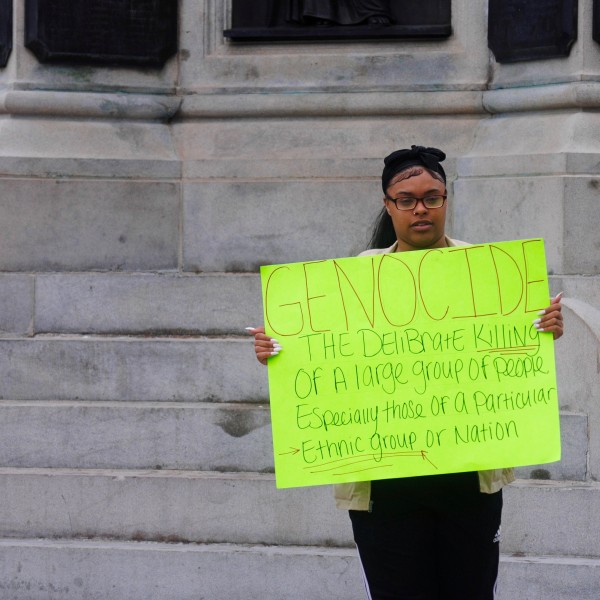 GENOCIDE
THE DELIBrATE KILLING
OF A large group OF People
Especially those OF a Particular
Ethnic group or Nation